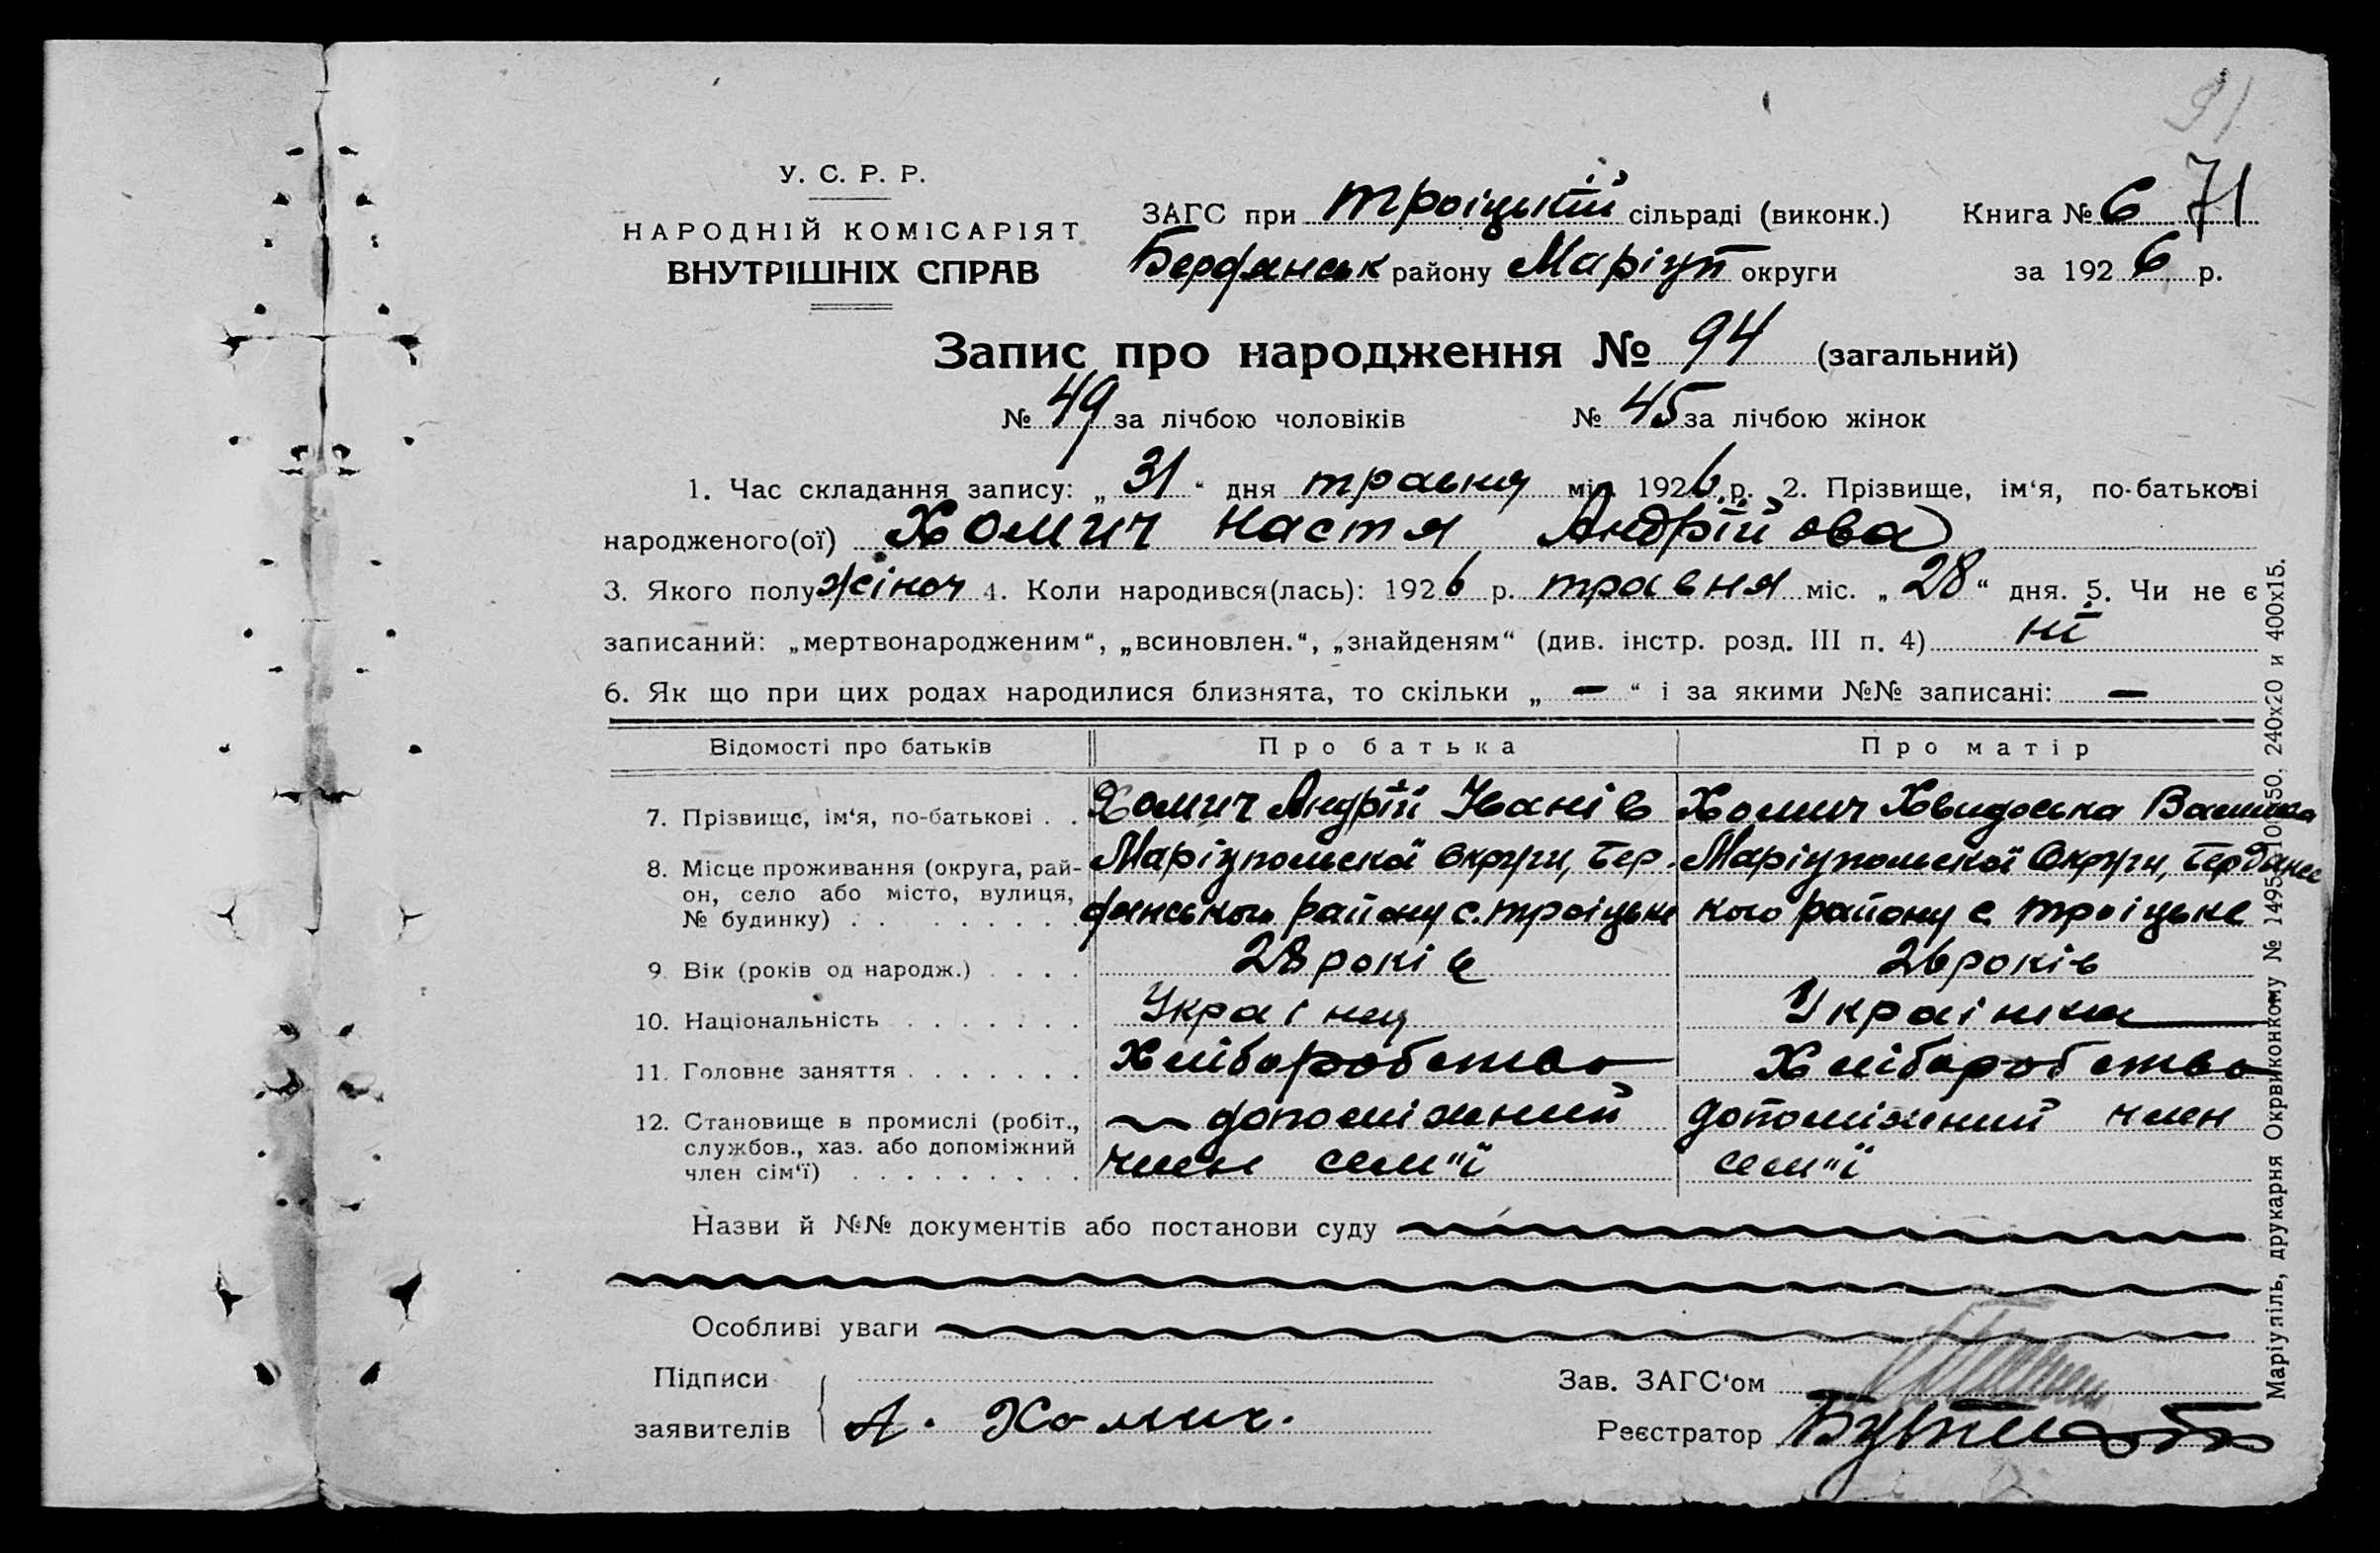 91
У. С. Р. Р.
НАРОДНІЙ КОМІСАРІЯТ
ВНУТРІШНІХ СПРАВ
ЗАГС при Троіцькій сільраді (виконк.)
Бердянськ району Маріуп округи
Книга № 6 71
за 1926 р.
Запис про народження № 94 (загальний)
№ 49 за лічбою чоловіків № 45 за лічбою жінок
1. Час складання запису: „31“ дня травня міс. 1926 р. 2. Прізвище, ім‘я, по-батькові
народженого(ої) Хомич Настя Андрійова
3. Якого полу жіноч 4. Коли народився(лась): 1926 р. травня міс. „28“ дня. 5. Чи не є
записаний: „мертвонародженим“, „всиновлен.“, „знайденям“ (див. інстр. розд. III п. 4) ні
6. Як що при цих родах народилися близнята, то скільки „ — “ і за якими №№ записані: —
Відомості про батьків Про батька Про матір
7. Прізвище, ім‘я, по-батькові . . Хомич Андрій Іванів Хомич Хвидоська
8. Місце проживання (округа, рай- Маріупольскої Округи, Бер- Маріупольскої Округи, Бердянсс
он, село або місто, вулиця, дянського району с. Троіцьке кого району с Троіцьке
№ будинку) . . . . . . . . .
9. Вік (років од народж.) . . . . 28 років 26 років
10. Національність . . . . . . . Украінец Украінка
11. Головне заняття . . . . . . . Хліборобство Хліборобство
12. Становище в промислі (робіт., допоміжний допоміжний член
службов., хаз. або допоміжний член сем"ї сем"ї
член сім‘ї) . . . . . . . . .
Назви й №№ документів або постанови суду
Особливі уваги
Підписи Зав. ЗАГС‘ом
заявителів А. Хомич. Реєстратор
Маріупіль, друкарня Окрвиконкому № 1495-10 50. 240х20 и 400х15.